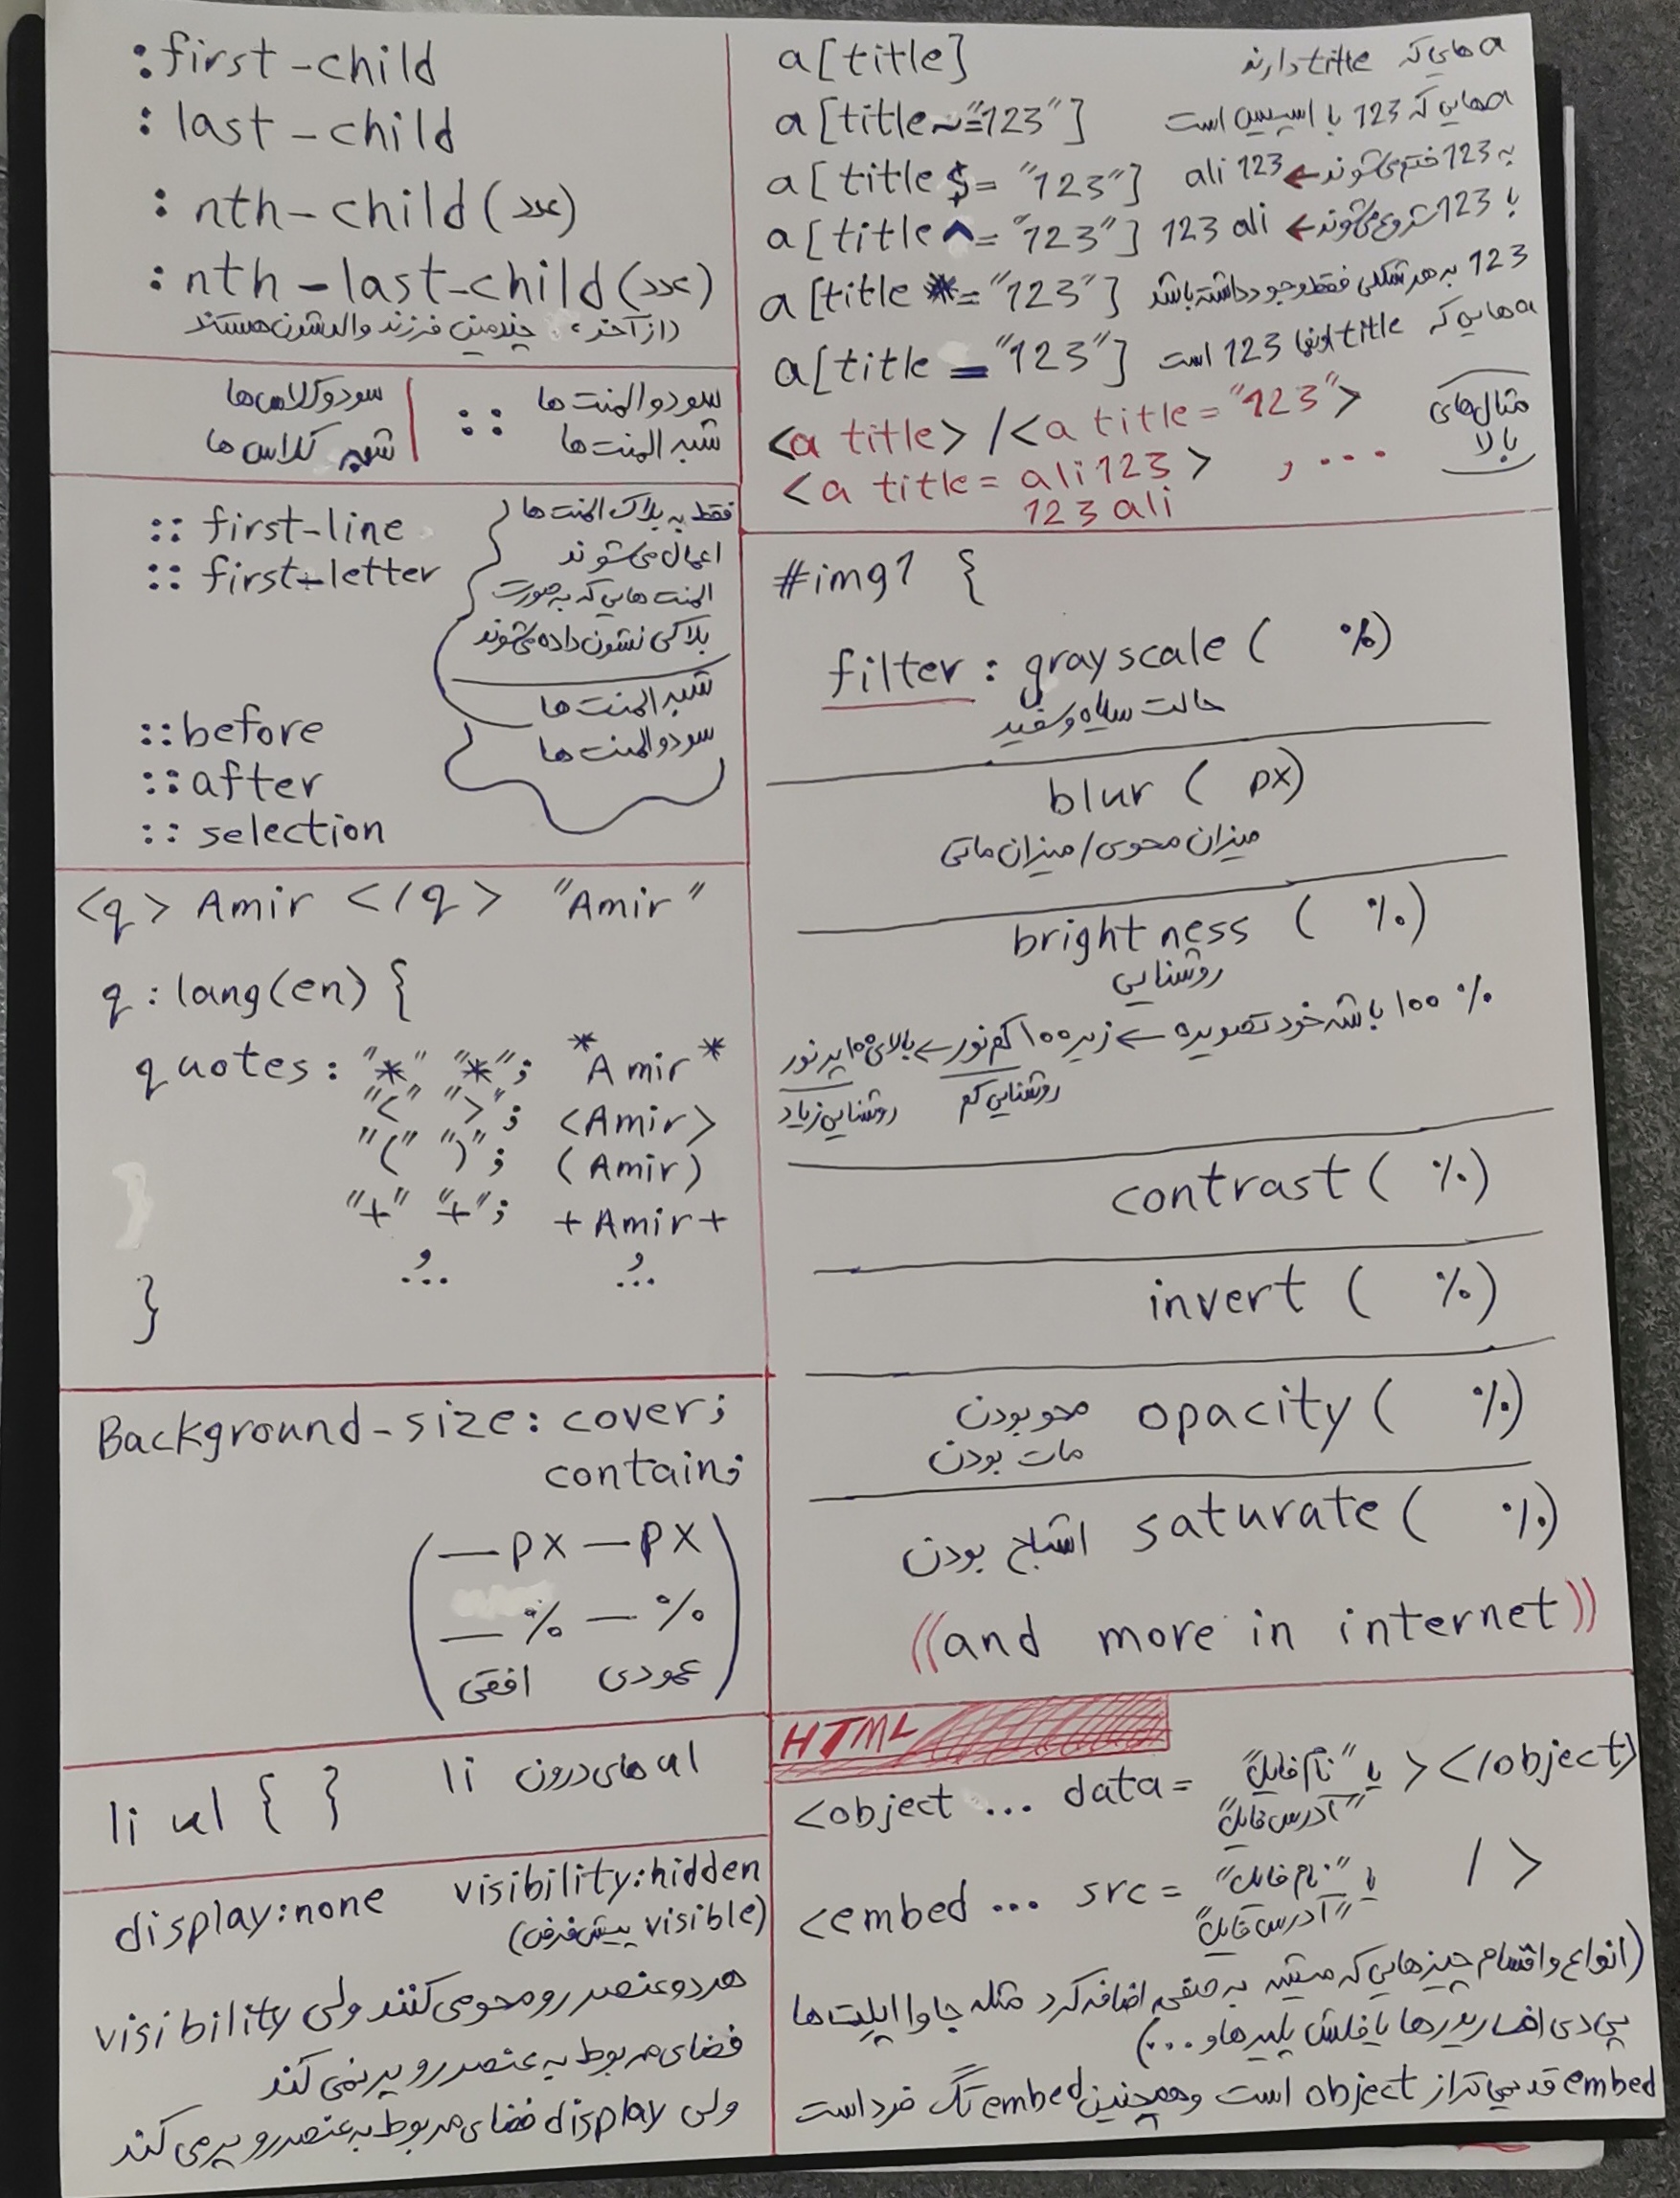 :first-child
:last-child
:nth-child(عدد)
:nth-last-child(عدد)
(از آخر، چندمین فرزند والدشون هستند
سودوکلاس‌ها | :: سودوالمنت ها
شبه کلاس‌ها | شبه المنت ها
::first-line
::first-letter
فقط به بلاک المنت ها
اعمال می‌شوند
المنت هایی که به صورت
بلاکی نشون داده می‌شوند
شبه المنت ها
سودوالمنت ها
::before
::after
::selection
<q> Amir </q> "Amir"
q:lang(en) {
quotes: "*" "*"; *Amir*
"<" ">"; <Amir>
"(" ")"; (Amir)
"+" "+"; +Amir+
و... و...
}
Background-size: cover;
contain;
(—px —px
—% —%
افقی عمودی)
li ul { } ulهای درون li
display:none visibility:hidden
(visible پیش‌فرض)
هر دو عنصر رو محو می‌کنند ولی visibility
فضای مربوط به عنصر رو پر نمی کند
ولی display فضای مربوط به عنصر رو پر می کند
a[title] aهایی که title دارند
a[title~="123"] aهایی که 123 با اسپیس است
a[title$= "123"] ali 123 ← به 123 ختم می‌شوند
a[title^= "123"] 123 ali ← با 123 شروع می‌شوند
a[title *= "123"] 123 به هر شکلی فقط وجود داشته باشد
a[title = "123"] aهایی که title اونها 123 است
<a title> / <a title = "123">
<a title = ali 123 > , ...
123 ali
مثال‌های
بالا
#img1 {
filter: grayscale( %)
حالت سیاه و سفید
blur ( px)
میزان محوی / میزان ماتی
brightness ( %)
روشنایی
% 100 باشه خود تصویره ← زیر 100 کم نور ← بالای 100 پر نور
روشنایی کم روشنایی زیاد
contrast( %)
invert ( %)
محو بودن opacity( %)
مات بودن
اشباع بودن saturate( %)
((and more in internet))
HTML
<object ... data= "نام فایل" یا ></object>
"آدرس فایل"
<embed ... src= "نام فایل" یا / >
"آدرس فایل"
(انواع و اقسام چیزهایی که میشه به صفحه اضافه کرد مثله جاوا اپلت ها
پی دی اف ریدرها یا فلش پلیرها و ...)
embed قدیمی تر از object است و همچنین embed تگ فرد است